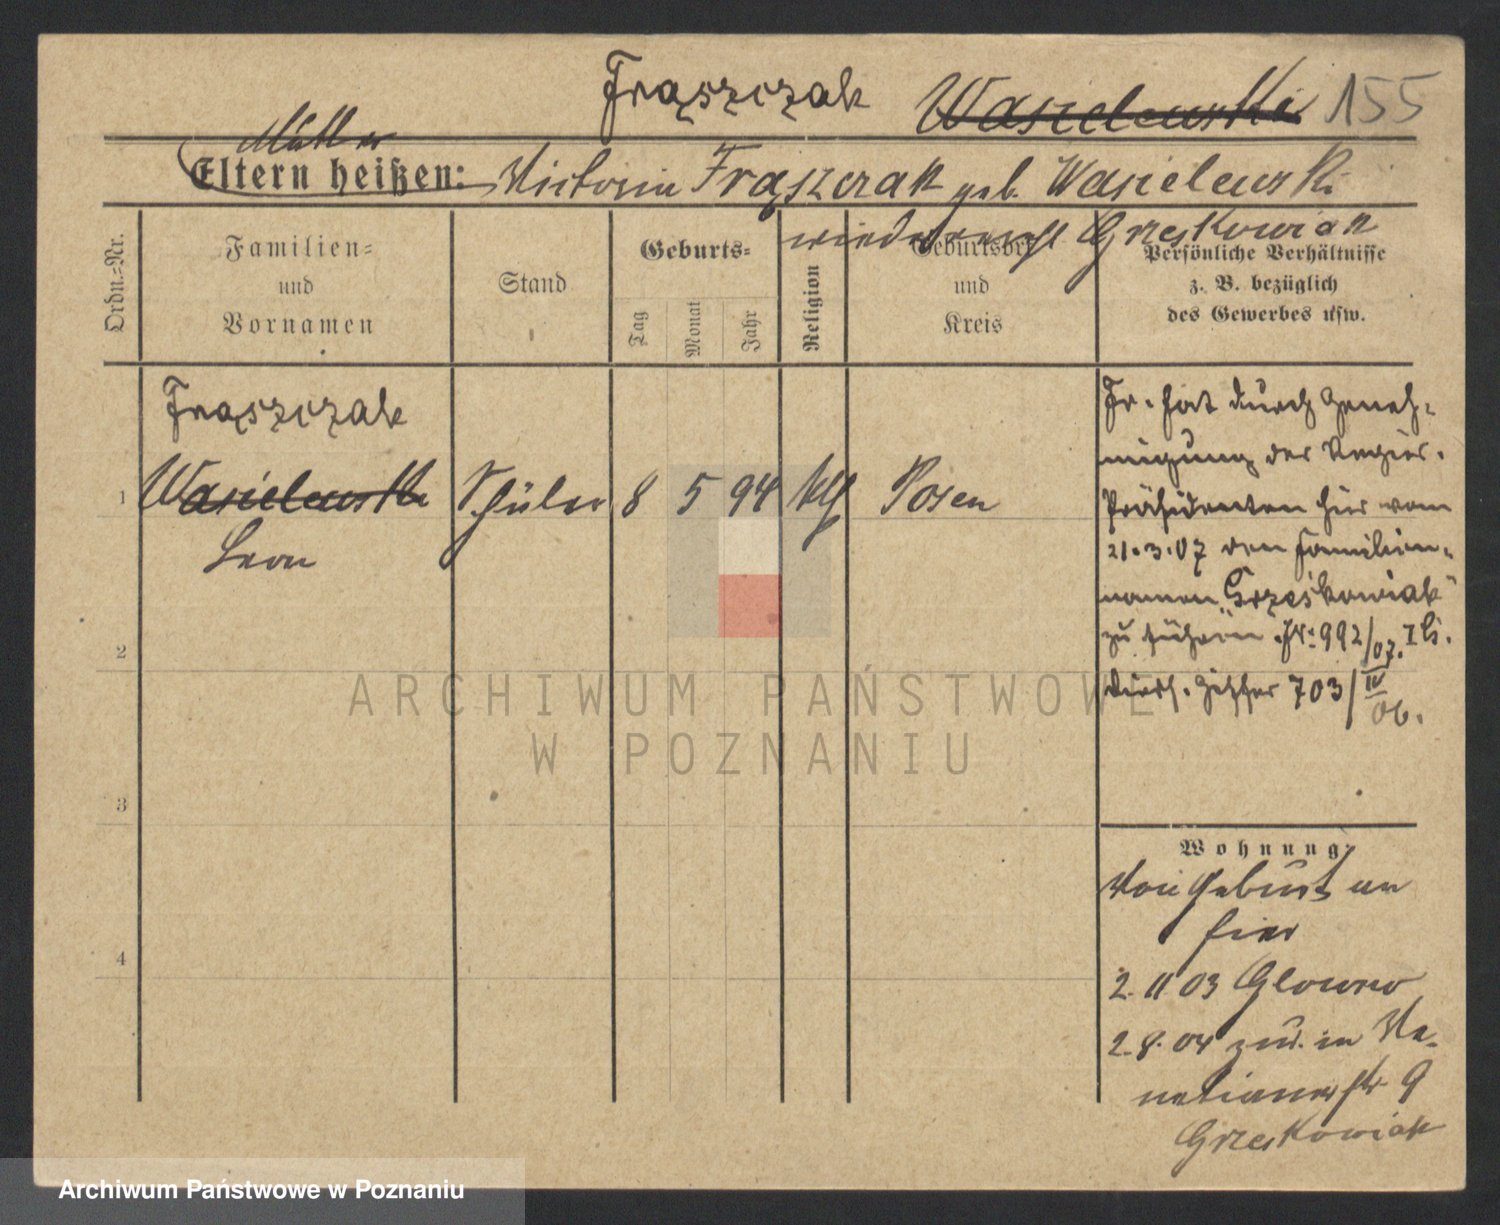 Frąszczak Wasielewski 155
Mutter
Eltern heißen: Victoria Frąszczak geb. Wasielewski
wiederverehl Grześkowiak
Ordn.=Nr.
Familien=
und
Vornamen
Stand
Geburts=
Tag
Monat
Jahr
Religion
Geburtsort
und
Kreis
Persönliche Verhältnisse
z. B. bezüglich
des Gewerbes usw.
Frąszczak
1 Wasielewski Schüler 8 5 94 klh Posen
Leon
2
3
4
Fr. hat durch Geneh=
migung der Regier.
Präsidenten hier vom
21.3.07 den Familien=
namen „Grześkowiak"
zu führen. Nr. 992/07. I
703/IV 06.
Wohnung
Von Geburt an
hier
2. 11 03 Glowno
2. 8. 04 zur. in Ve=
netianerstr 9
Grześkowiak
ARCHIWUM PAŃSTWOWE
W POZNANIU
Archiwum Państwowe w Poznaniu